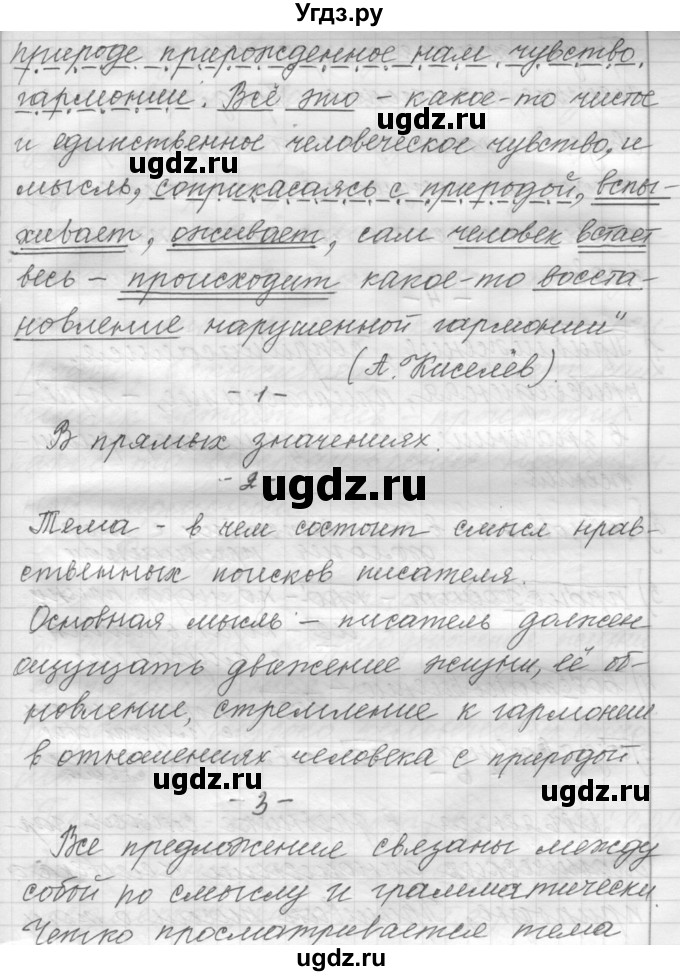 Угдз.ру
природе прирожденное нам чувство
гармонии. Всё это – какое-то чистое
ugdz.ru
и единственное человеческое чувство, и
ugdz.ru
мысль, соприкасаясь с природой, вспы-
хивает, оживает, сам человек встает
весь – происходит какое-то восста-
новление нарушенной гармонии"
(А. Киселёв).
ugdz.ru
- 1 -
В прямых значениях.
- 2
ugdz.ru
Тема – в чем состоит смысл нрав-
ственных поисков писателя.
Основная мысль – писатель должен
ощущать движение жизни, её об-
новление, стремление к гармонии
в отношениях человека с природой.
ugdz.ru
- 3 -
ugdz.ru
Все предложения связаны между
собой по смыслу и грамматически.
Четко просматривается тема
ugdz.ru